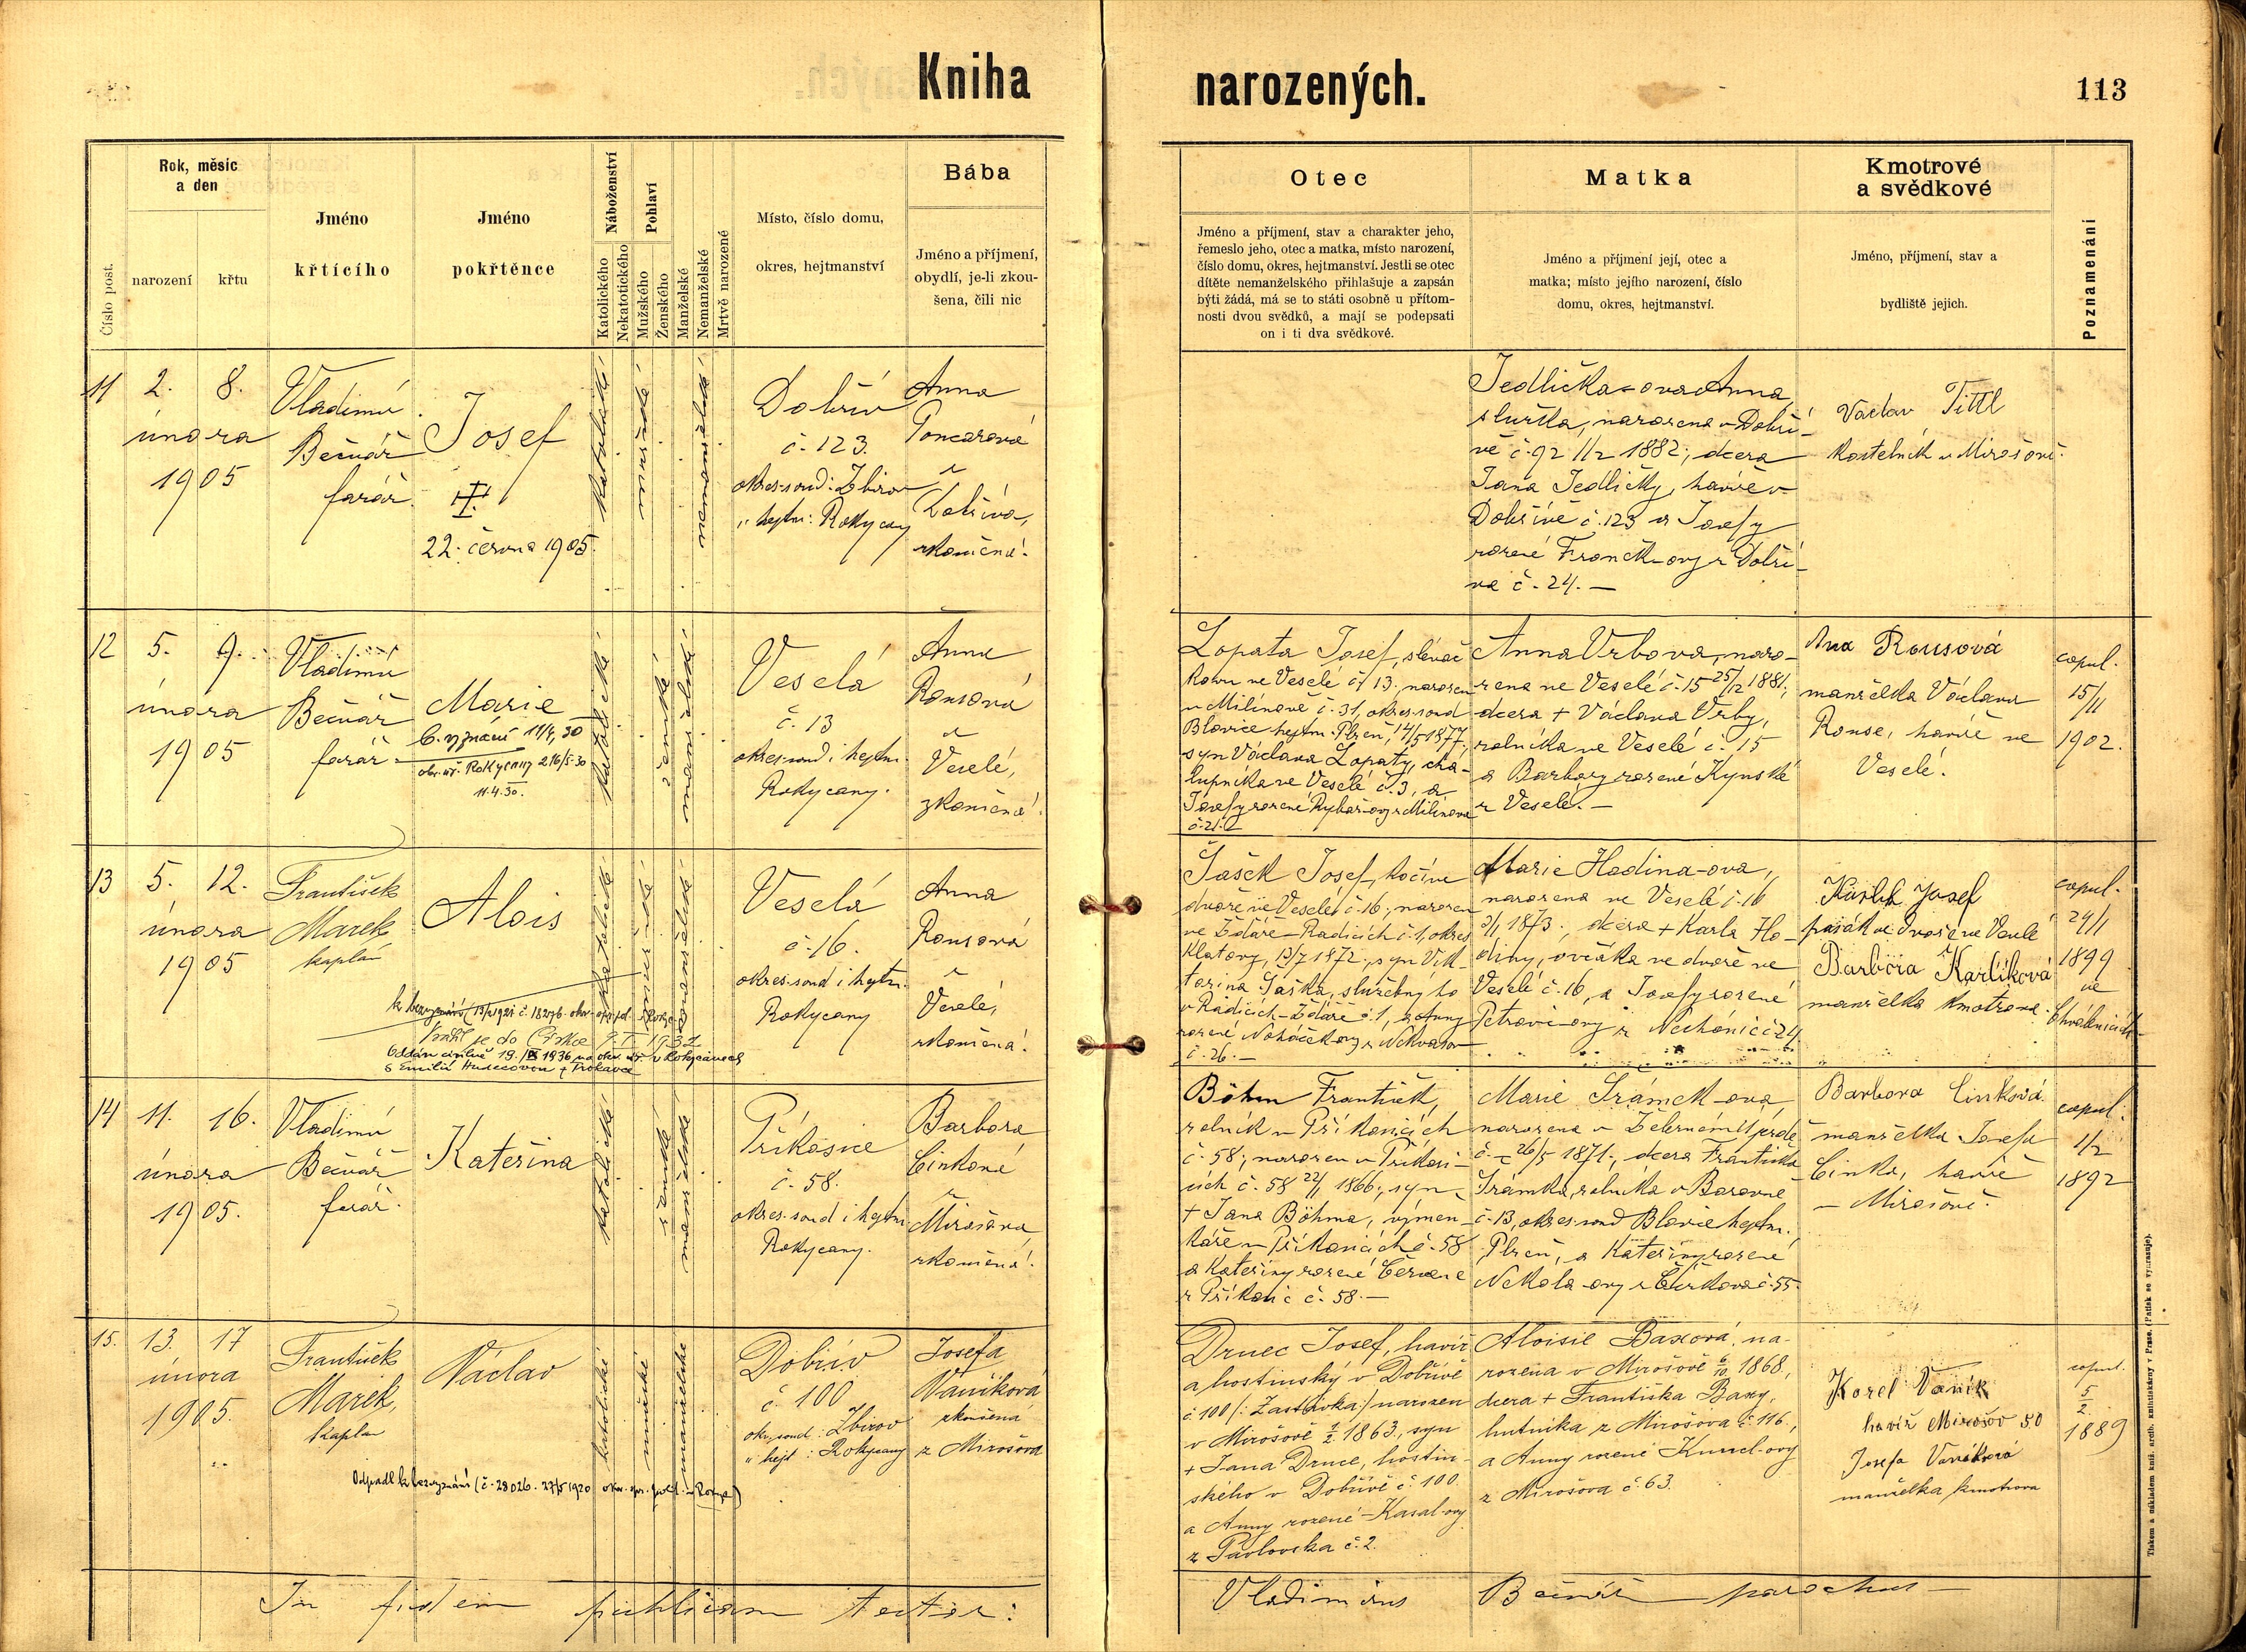 Kniha narozených.
113
Číslo post.
Rok, měsíc
a den
narození
křtu
Jméno
křtícího
Jméno
pokřtěnce
Náboženství
Katolického
Nekatolického
Pohlaví
Mužského
Ženského
Manželské
Nemanželské
Mrtvě narozené
Místo, číslo domu,
okres, hejtmanství
Bába
Jméno a příjmení,
obydlí, je-li zkou-
šena, čili nic
Otec
Jméno a příjmení, stav a charakter jeho,
řemeslo jeho, otec a matka, místo narození,
číslo domu, okres, hejtmanství. Jestli se otec
dítěte nemanželského přihlašuje a zapsán
býti žádá, má se to státi osobně u přítom-
nosti dvou svědků, a mají se podepsati
on i ti dva svědkové.
Matka
Jméno a příjmení její, otec a
matka; místo jejího narození, číslo
domu, okres, hejtmanství.
Kmotrové
a svědkové
Jméno, příjmení, stav a
bydliště jejich.
Poznamenání
11
2. 8.
února
1905
Vladimír
Bečvář
farář.
Josef
22. června 1905.
katolické
mužské
nemanželské
Dobřív
č. 123.
okres. soud: Zbirov
" hejtm: Rokycany
Anna
Poncarová
z
Dobříva,
zkoušená.
Jedlička-ova Anna,
služka, narozena v Dobří-
vě č. 92 11/2 1882; dcera
Jana Jedličky, havíře v
Dobřívě č. 123 a Josefy
rozené Franěk-ovy z Dobří-
va č. 24. —
Václav Tittl
kostelník v Mirošově.
12
5. 9.
února
1905
Vladimír
Bečvář
farář.
Marie
b. vyznání 11/4, 30
okr. úř. Rokycany 216/5-30
11.4.30.
katolické
ženské
manželské
Veselá
č. 13
okres. soud i hejtm.
Rokycany.
Anna
Rousová
z
Veselé,
zkoušená.
Lopata Josef, slévač
kovu ve Veselé č. 13; narozen
v Milínově č. 31, okres. soud
Blovice hejtm. Plzeň, 14/5 1877,
syn Václava Lopaty, cha-
lupníka ve Veselé č. 3, a
Josefy rozené Rybař-ovy z Milínova
č. 21.
Anna Vrbova, naro-
zena ve Veselé č. 15 25/12 1881;
dcera + Václava Vrby,
rolníka ve Veselé č. 15
a Barbory rozené Kynské
z Veselé. —
Anna Rousová
manželka Václava
Rouse, havíře ve
Veselé.
copul.
15/11
1902.
13
5. 12.
února
1905
František
Marek
kaplan
Alois
katolické
mužské
manželské
Veselá
č. 16.
okres. soud i hejtm.
Rokycany
Anna
Rousová
z
Veselé,
zkoušená.
Vrátil se do Církve
Oddán civilně 19./IX 1936 na okr. úř. v Rokycanech
s Emilií Hudecovou z
Šašek Josef, kočí ve
dvoře ve Veselé č. 16; narozen
ve Ždáře-Radicích č. 1, okres
Klatovy, 13/7 1872; syn Vik-
torina Šaška, služebného
v Radicích-Ždáře č. 1, a Anny
rozené Noháčkovy z Nekvasov
č. 26. —
Marie Hodina-ova,
narozena ve Veselé č. 16
3/1 1873; dcera + Karla Ho-
diny, ovčáka ve dvoře ve
Veselé č. 16, a Josefy rozené
Petrovic-ovy z Nechánic č. 24.
Karlík Josef
pasák ve dvoře ve Veselé
Barbora Karlíková
manželka kmotrova.
copul.
24/1
1899
ve
14
11. 16.
února
1905.
Vladimír
Bečvář
farář.
Kateřina
katolické
ženské
manželské
Příkosice
č. 58.
okres. soud i hejtm
Rokycany.
Barbora
Cinková
z
Mirošova
zkoušená.
Böhm František,
rolník v Příkosicích
č. 58; narozen v Příkosi-
cích č. 58 22/1 1866; syn
+ Jana Böhma, výmen-
káře v Příkosicích č. 58
a Kateřiny rozené Červené
z Příkosic č. 58. —
Marie Šrámek-ova,
narozena v Železném Újezdě
č. — 26/5 1871; dcera Františka
Šrámka, rolníka v Borovně
č. 13, okres. soud Blovice hejtm.
Plzeň, a Kateřiny rozené
Nekola-ovy z Čížkova č. 55.
Barbora Cinková
manželka Josefa
Cinka, havíře
v Mirošově.
copul.
1/2
1892
15.
13. 17
února
1905.
František
Marek,
kaplan
Václav
katolické
mužské
manželské
Dobřív
č. 100
okr. soud: Zbirov
" hejt: Rokycany
Josefa
Vaníková
zkoušená
z Mirošova
Odpadl k bezvyznání (č. 28026. 27/5 1920 okr. spr. pol. v Rokyc.)
Drnec Josef, havíř
a hostinský v Dobřívě
č. 100 /: Zastávka:/ narozen
v Mirošově 1/2 1863, syn
+ Jana Drnce, hostin-
ského v Dobřívě č. 100.
a Anny rozené Kasal-ovy
z Pavlovska č. 2.
Aloisie Baxová, na-
rozena v Mirošově 6/10 1868,
dcera + Františka Baxy,
hutníka z Mirošova č. 116.,
a Anny rozené Kuncl-ovy
z Mirošova č. 63.
Karel Vaník
havíř Mirošov 50
Josefa Vaníková
manželka kmotrova
copul.
5/2
1889
In fidem publicam testor:
Vladimirus Bečvář parochus
Tiskem a nákladem kníž. arcib. knihtiskárny v Praze. (Patisk se vyhrazuje).